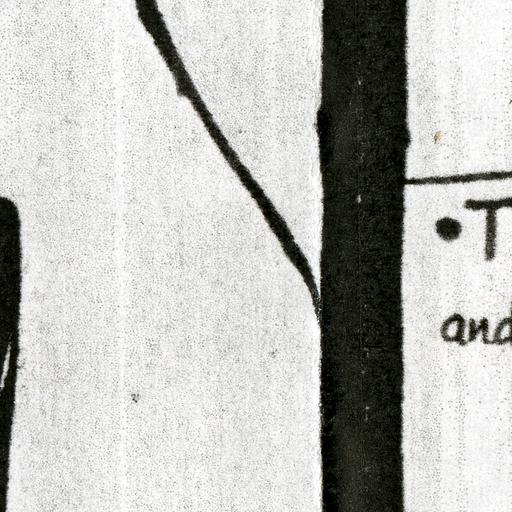 •T
and